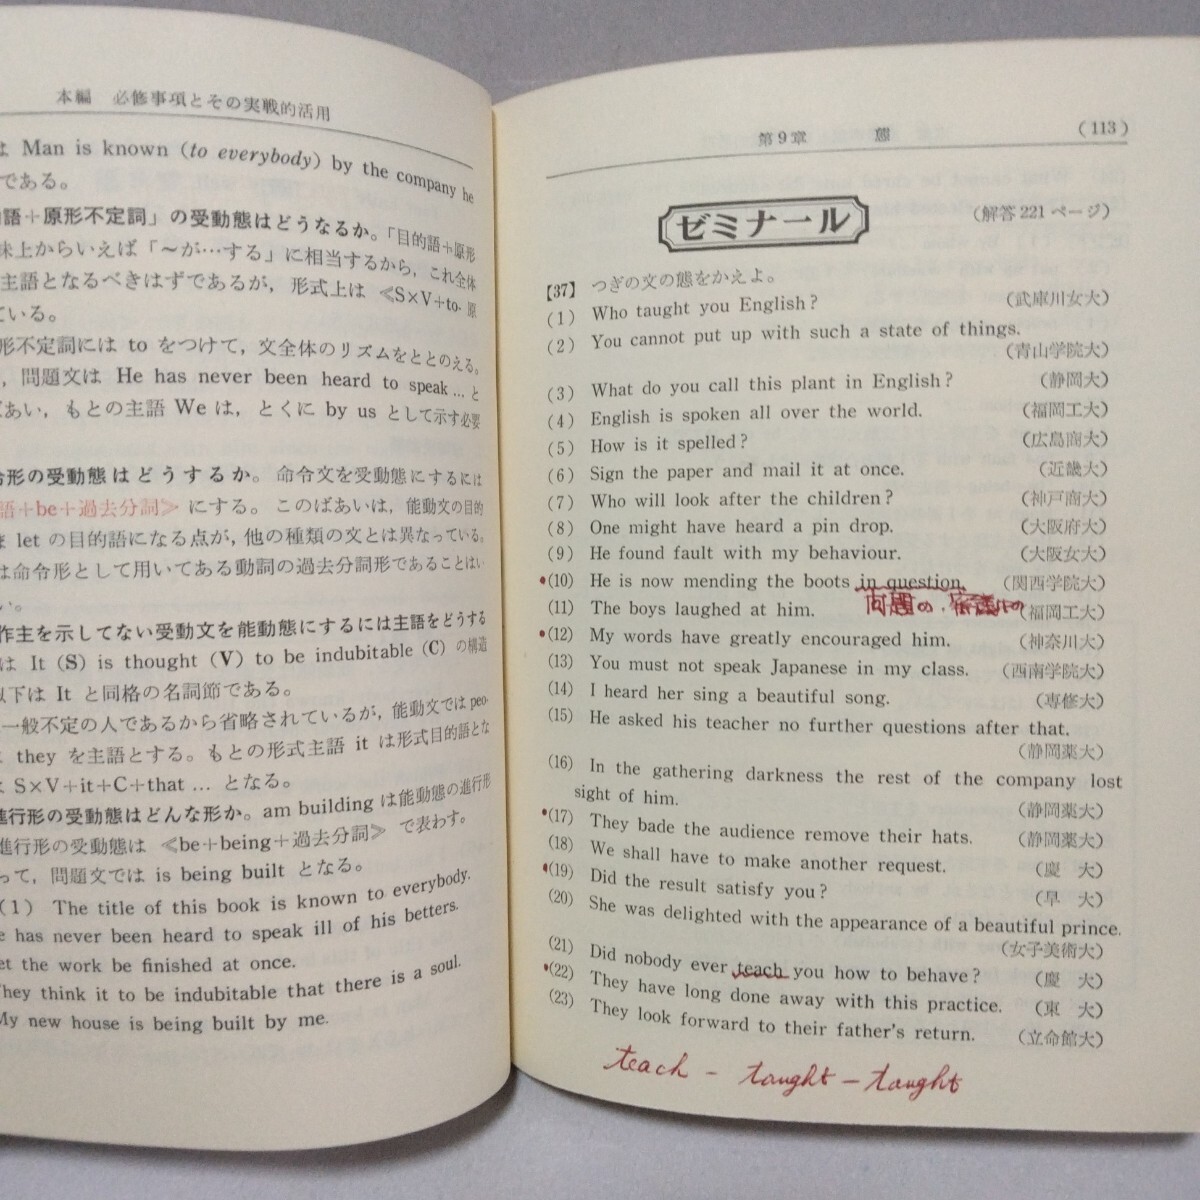 本編 必修事項とその実戦的活用
は Man is known (to everybody) by the company he
である。
語＋原形不定詞」の受動態はどうなるか。「目的語＋原形
味上からいえば「〜が…する」に相当するから，これ全体
主語となるべきはずであるが，形式上は ≪S×V+to- 原
ている。
形不定詞には to をつけて，文全体のリズムをととのえる。
，問題文は He has never been heard to speak … と
ばあい，もとの主語 We は，とくに by us として示す必要
令形の受動態はどうするか。命令文を受動態にするには
語＋be＋過去分詞≫ にする。このばあいは，能動文の目的
ま let の目的語になる点が，他の種類の文とは異なっている。
は命令形として用いてある動詞の過去分詞形であることはい
い。
作主を示してない受動文を能動態にするには主語をどうする
は It (S) is thought (V) to be indubitable (C) の構造
以下は It と同格の名詞節である。
一般不定の人であるから省略されているが，能動文では peo-
they を主語とする。もとの形式主語 it は形式目的語とな
S×V+it+C+that … となる。
進行形の受動態はどんな形か。am building は能動態の進行形
進行形の受動態は ≪be+being+過去分詞≫ で表わす。
って，問題文では is being built となる。
(1) The title of this book is known to everybody.
e has never been heard to speak ill of his betters.
et the work be finished at once.
They think it to be indubitable that there is a soul.
My new house is being built by me.
第9章 態 (113)
ゼミナール (解答 221 ページ)
【37】 つぎの文の態をかえよ。
(1) Who taught you English? (武庫川女大)
(2) You cannot put up with such a state of things.
(青山学院大)
(3) What do you call this plant in English? (静岡大)
(4) English is spoken all over the world. (福岡工大)
(5) How is it spelled? (広島商大)
(6) Sign the paper and mail it at once. (近畿大)
(7) Who will look after the children? (神戸商大)
(8) One might have heard a pin drop. (大阪府大)
(9) He found fault with my behaviour. (大阪女大)
•(10) He is now mending the boots in question. (関西学院大)
問題の・審議中の
(11) The boys laughed at him. (福岡工大)
•(12) My words have greatly encouraged him. (神奈川大)
(13) You must not speak Japanese in my class. (西南学院大)
(14) I heard her sing a beautiful song. (専修大)
(15) He asked his teacher no further questions after that.
(静岡薬大)
(16) In the gathering darkness the rest of the company lost
sight of him. (静岡薬大)
•(17) They bade the audience remove their hats. (静岡薬大)
(18) We shall have to make another request. (慶 大)
•(19) Did the result satisfy you? (早 大)
(20) She was delighted with the appearance of a beautiful prince.
(女子美術大)
(21) Did nobody ever teach you how to behave? (慶 大)
•(22) They have long done away with this practice. (東 大)
(23) They look forward to their father's return. (立命館大)
teach - taught - taught